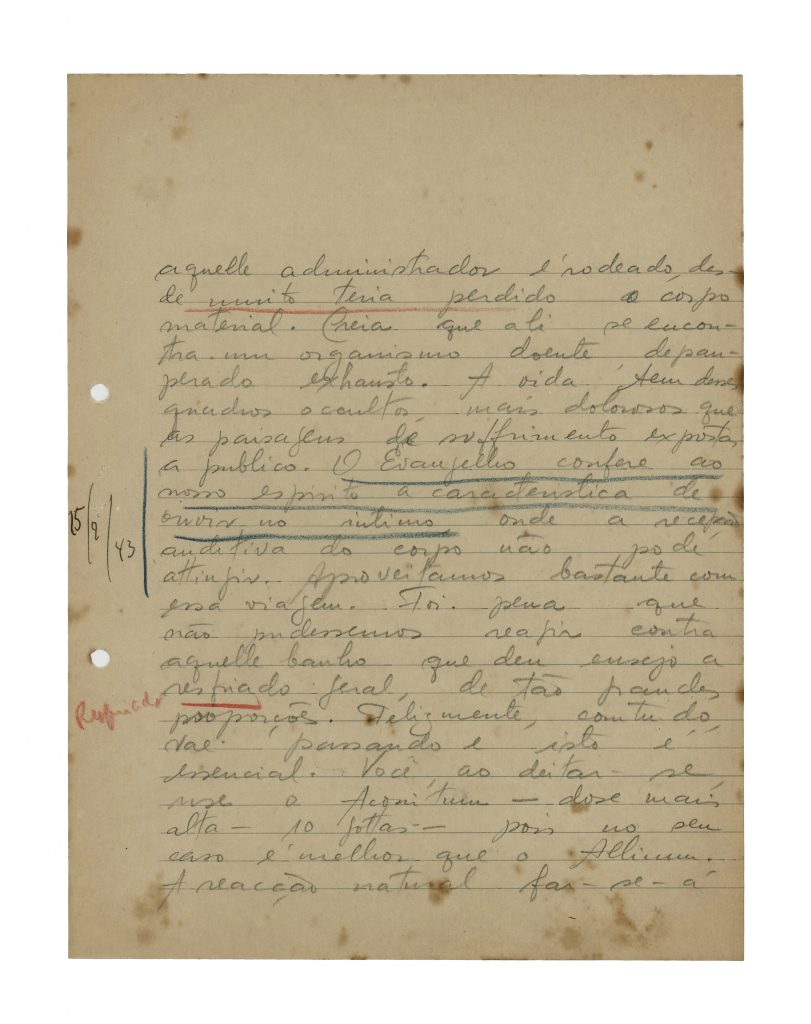 aquelle administrador é rodeado, des-
de muito teria perdido o corpo
material. Creia que ali se encon-
tra um organismo doente depau-
perado exhausto. A vida tem desses
quadros occultos, mais dolorosos que
as paisagens de soffrimento expostas
a publico. O Evangelho confere ao
nosso espirito a caracteristica de
ouvir no intimo, onde a recepção
auditiva do corpo não pode
attingir. Aproveitamos bastante com
essa viagem. Foi pena que
não pudessemos reagir contra
aquelle banho que deu ensejo a
resfriado geral, de tão grandes
proporções. Felizmente, comtudo,
vae passando e isto é
essencial. Você ao deitar-se,
use o Aconitum — dose mais
alta — 10 gottas — pois no seu
caso é melhor que o Allium.
A reacção natural far-se-á
25/2/43
Resfriado